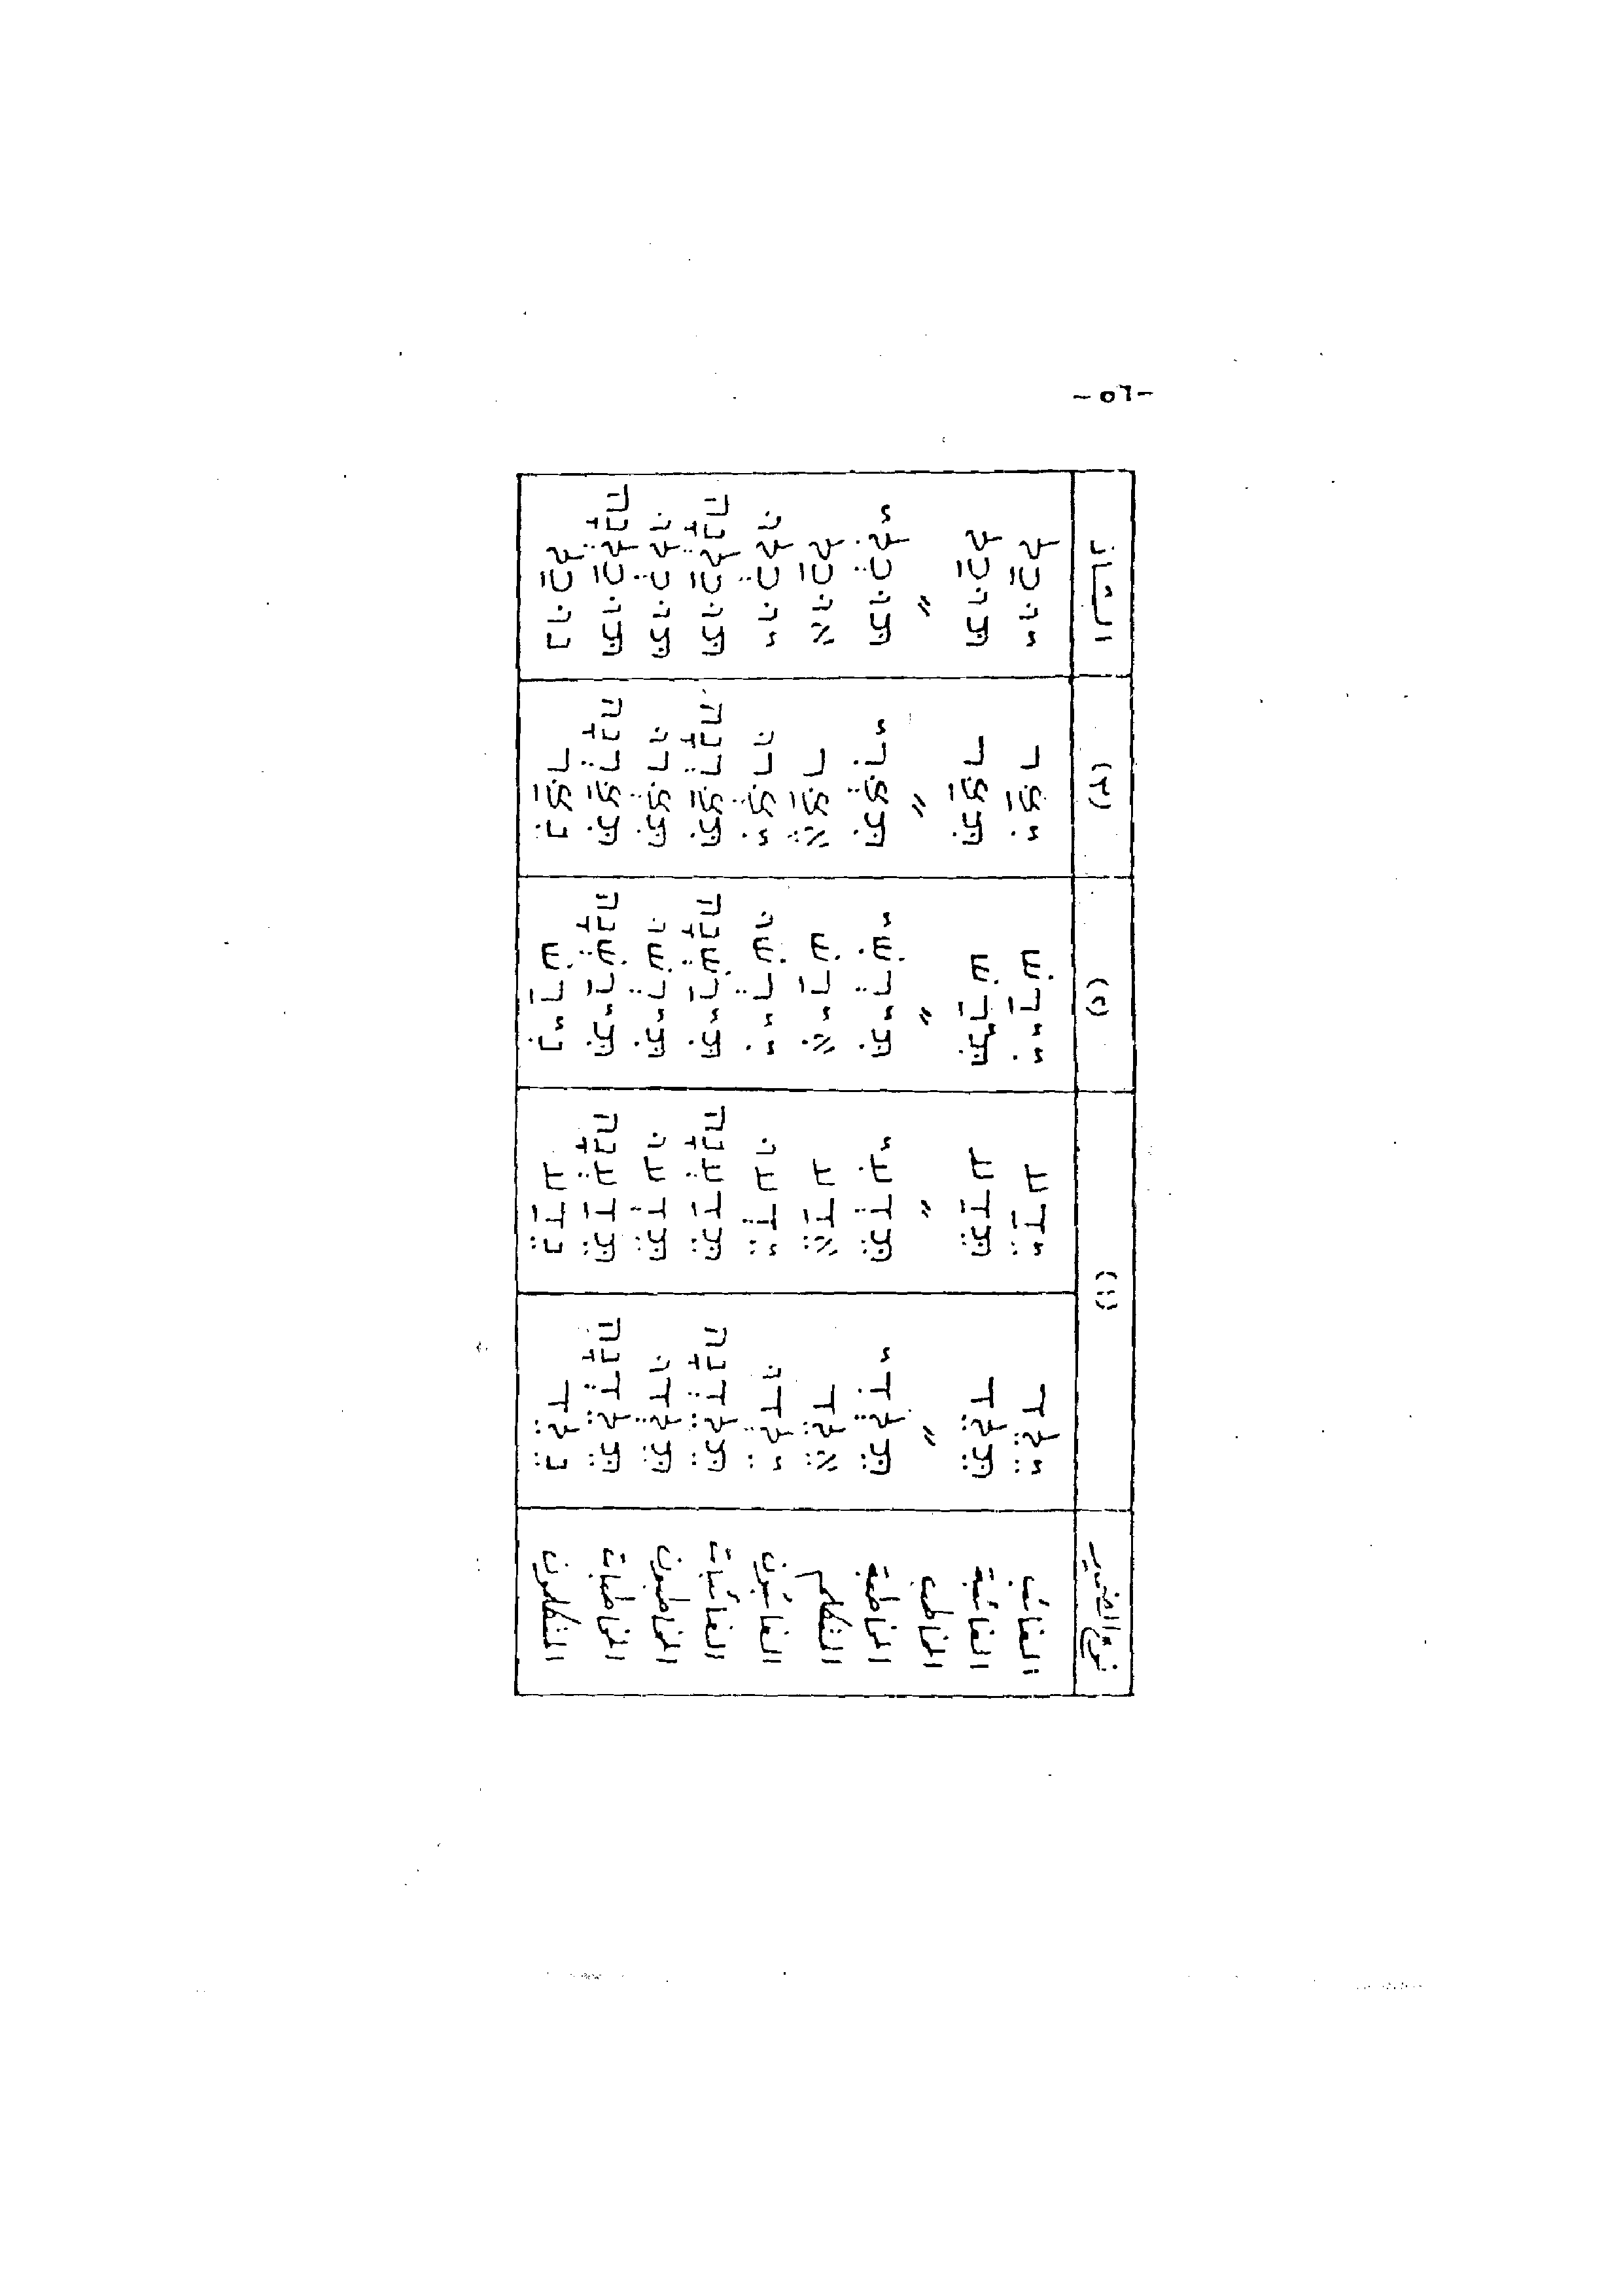 -٥٦-
نوع الضمير (١) (٢) (٣) الشاذ
الغائب יֵלֵד יֵדַע יִירַשׁ יִצַּר יוּכַל
الغائبة תֵּלֵד תֵּדַע תִּירַשׁ תִּצַּר תּוּכַל
المخاطب " " " " "
المخاطبة תֵּלְדִי תֵּדְעִי תִּירְשִׁי תִּצְּרִי תּוּכְלִי
المتكلم אֵלֵד אֵדַע אִירַשׁ אֶצַּר אוּכַל
الغائبون יֵלְדוּ יֵדְעוּ יִירְשׁוּ יִצְּרוּ יוּכְלוּ
الغائبات תֵּלֵדְנָה תֵּדַעְנָה תִּירַשְׁנָה תִּצַּרְנָה תּוּכַלְנָה
المخاطبون תֵּלְדוּ תֵּדְעוּ תִּירְשׁוּ תִּצְּרוּ תּוּכְלוּ
المخاطبات תֵּלֵדְנָה תֵּדַעְנָה תִּירַשְׁנָה תִּצַּרְנָה תּוּכַלְנָה
المتكلمون נֵלֵד נֵדַע נִירַשׁ נִצַּר נוּכַל